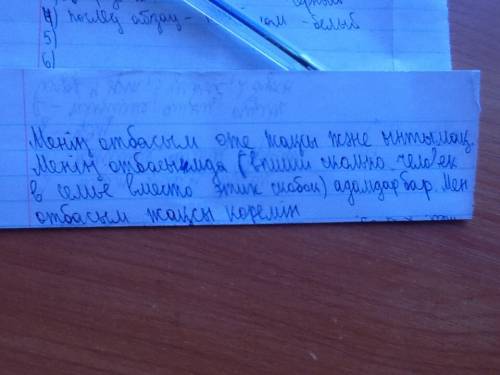 4) послед абзац -
5)
6)
Менің отбасым оте жақсы және ынтымақ.
Менің отбасымда (впиши сколько человек
в семье вместо этих скобок) адамдар бар. Мен
отбасым жақсы коремін